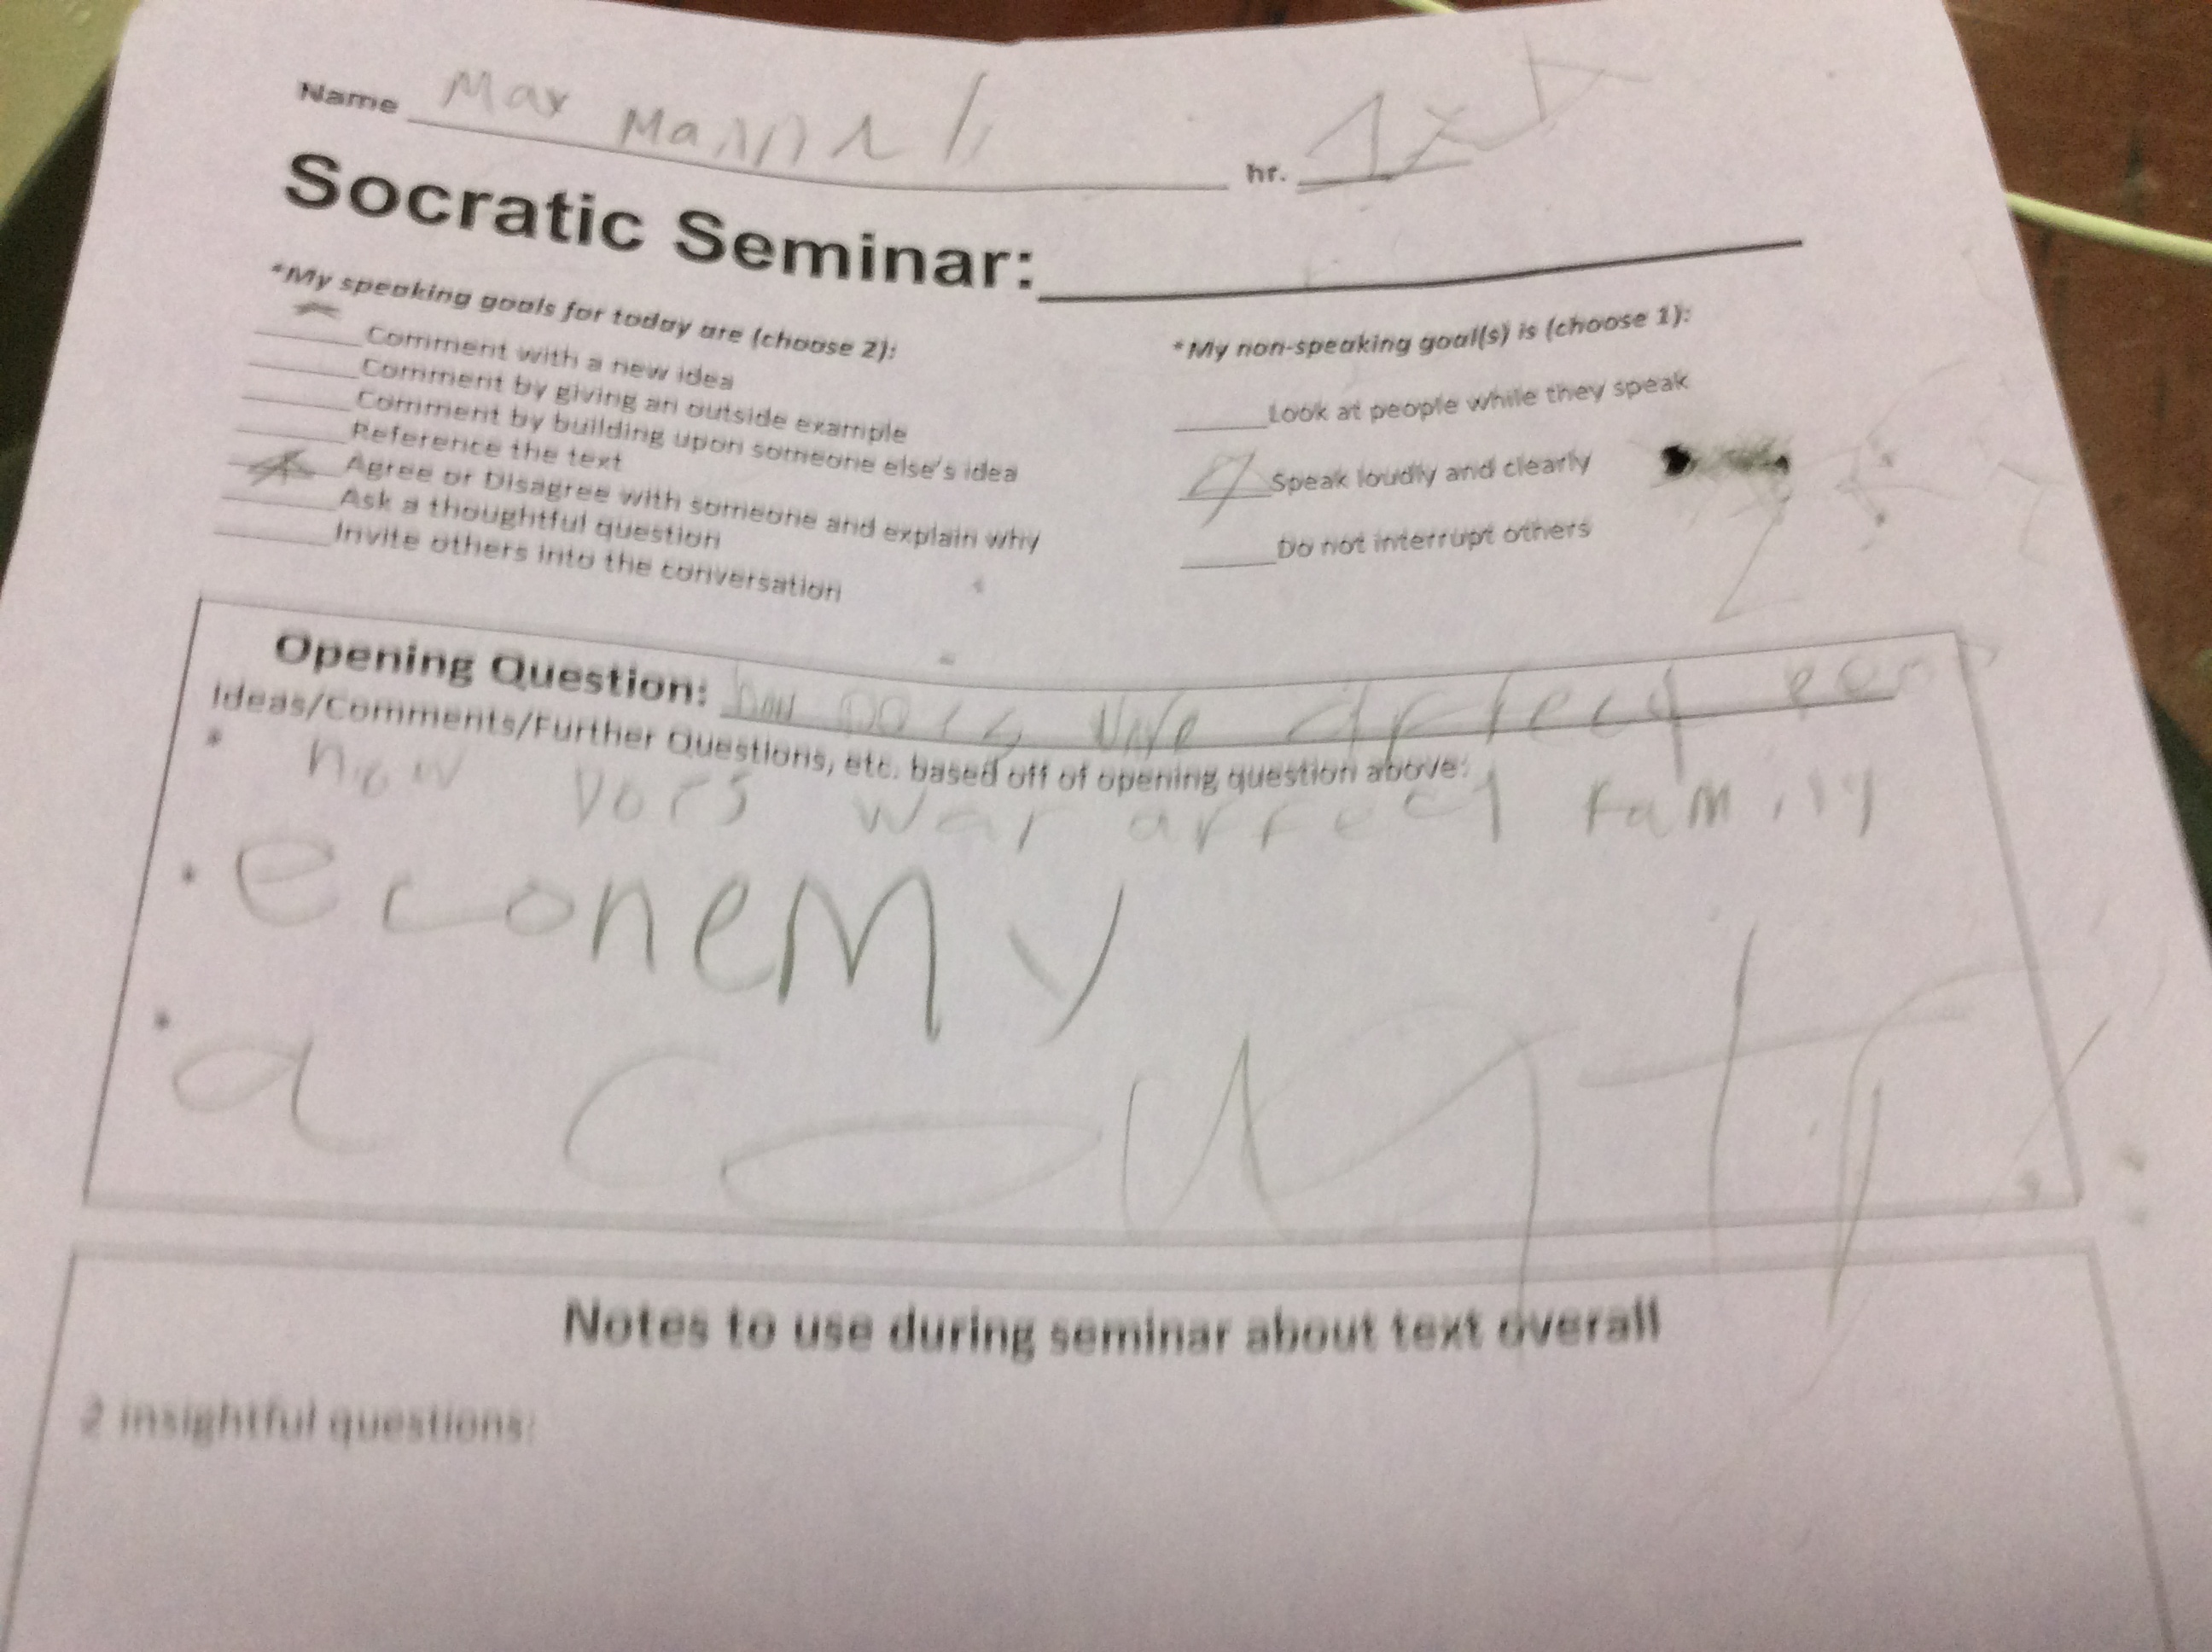 Name Max
hr.
Socratic Seminar:
*My speaking goals for today are (choose 2):
Comment with a new idea
Comment by giving an outside example
Comment by building upon someone else's idea
Reference the text
Agree or Disagree with someone and explain why
Ask a thoughtful question
Invite others into the conversation
*My non-speaking goal(s) is (choose 1):
Look at people while they speak
Speak loudly and clearly
Do not interrupt others
Opening Question: how
Ideas/Comments/Further Questions, etc. based off of opening question above:
* how Dors war affect family
* econemy
* a
Notes to use during seminar about text overall
2 insightful questions: